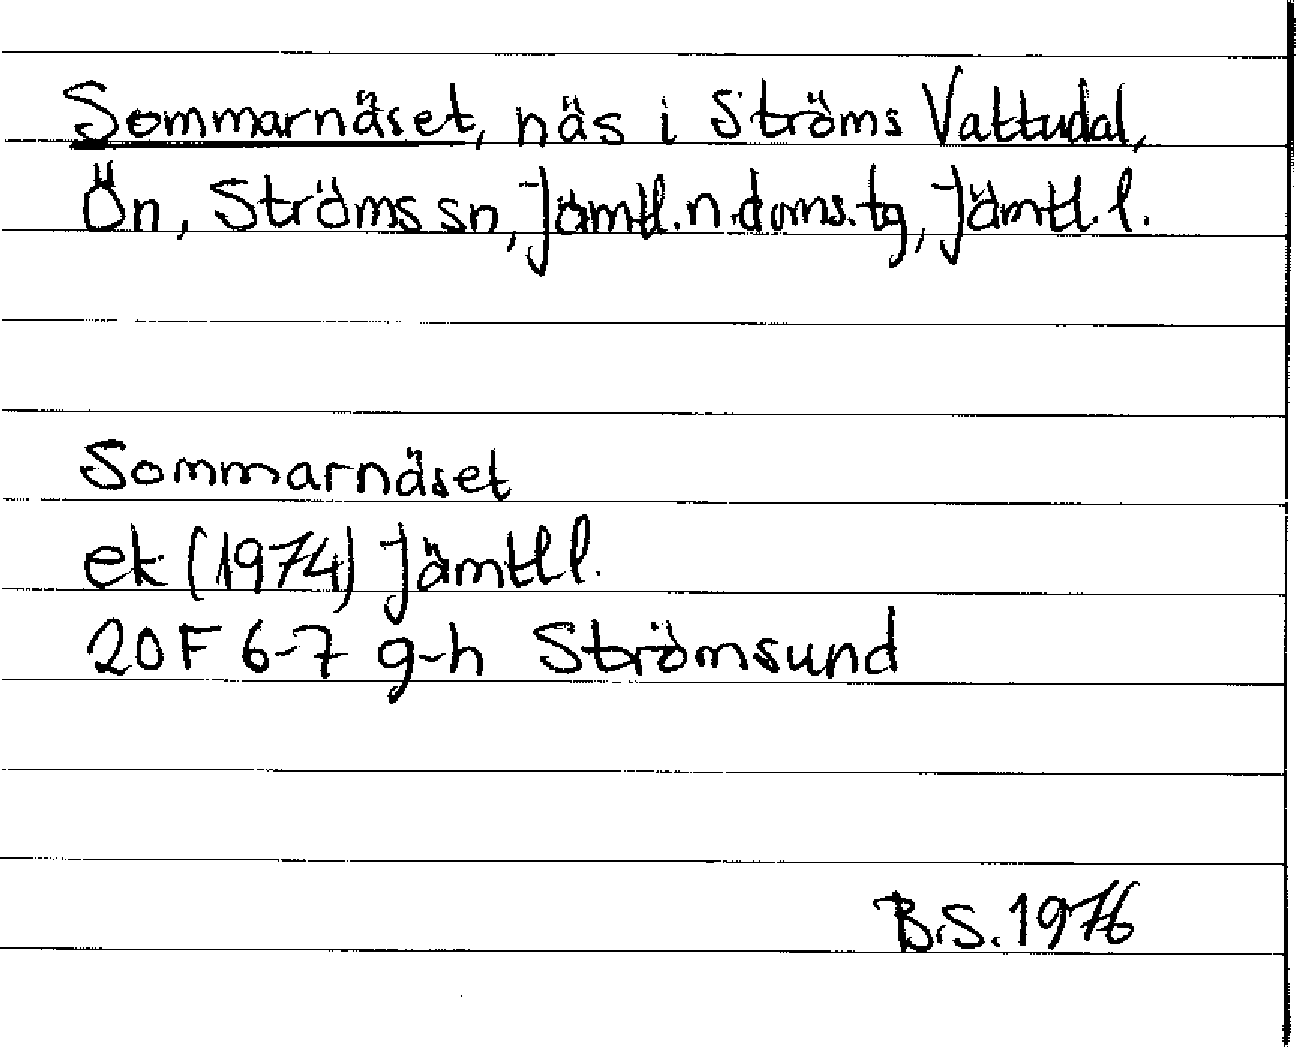 Sommarnäset, näs i Ströms Vattudal,
Ön, Ströms sn, Jämtl. n. doms. tg, Jämtl. l.
Sommarnäset
ek (1974) Jämtl l.
20 F 6-7 g-h Strömsund
B.S. 1976